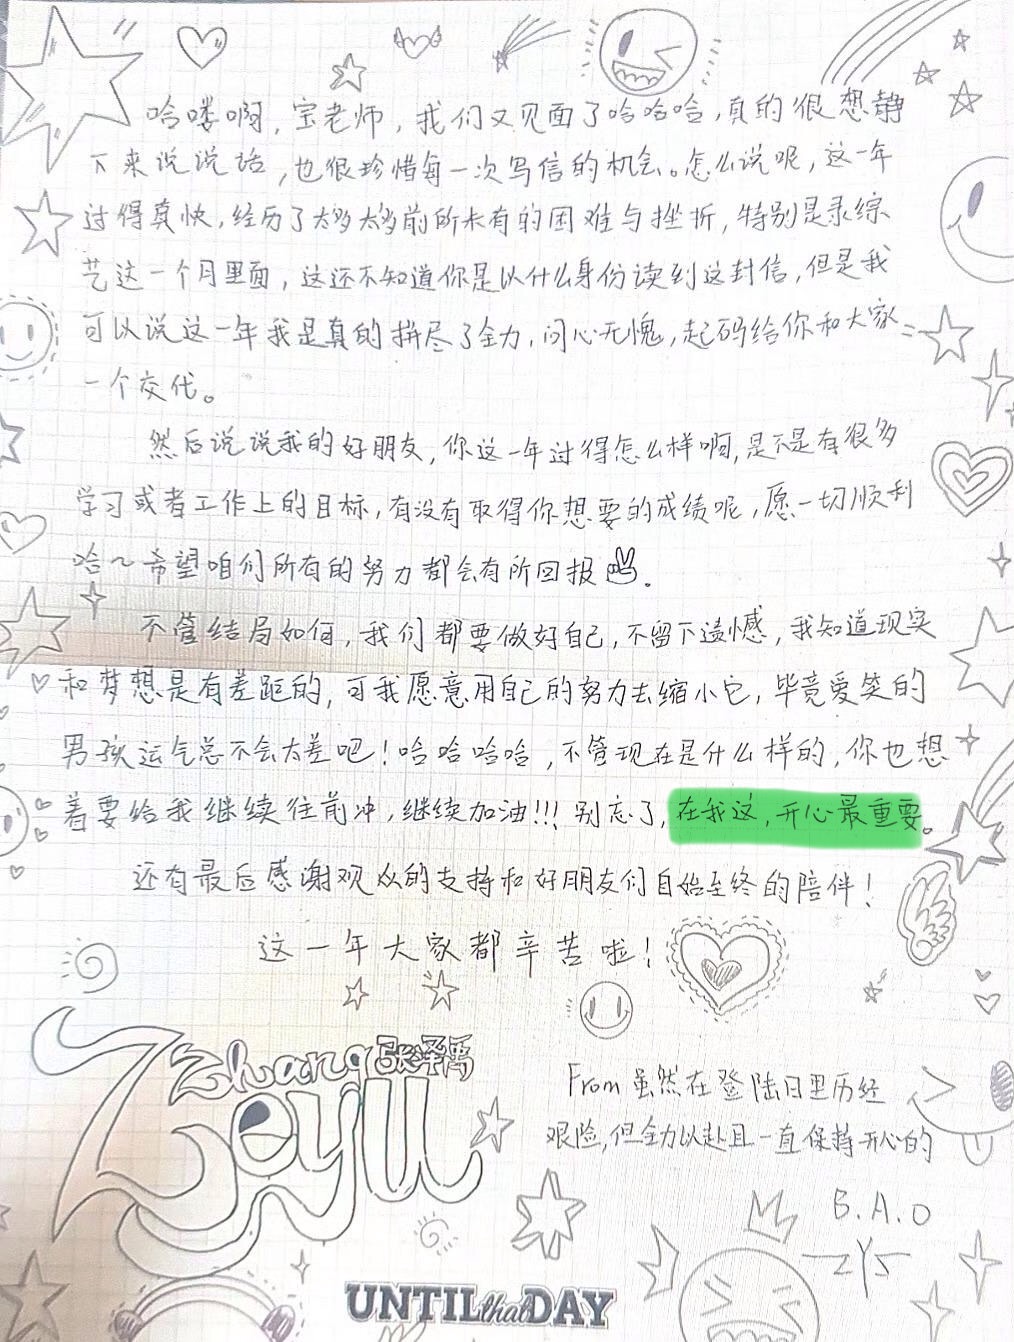 哈喽啊,宝老师,我们又见面了哈哈哈,真的很想静
下来说说话,也很珍惜每一次写信的机会。怎么说呢,这一年
过得真快,经历了太多太多前所未有的困难与挫折,特别是录综
艺这一个月里面,这还不知道你是以什么身份读到这封信,但是我
可以说这一年我是真的拼尽了全力,问心无愧,起码给你和大家
一个交代。
然后说说我的好朋友,你这一年过得怎么样啊,是不是有很多
学习或者工作上的目标,有没有取得你想要的成绩呢,愿一切顺利
哈~希望咱们所有的努力都会有所回报✌.
不管结局如何,我们都要做好自己,不留下遗憾,我知道现实
和梦想是有差距的,可我愿意用自己的努力去缩小它,毕竟爱笑的
男孩运气总不会太差吧!哈哈哈哈,不管现在是什么样的,你也想
着要给我继续往前冲,继续加油!!!别忘了,在我这,开心最重要。
还有最后感谢观众的支持和好朋友们自始至终的陪伴!
这一年大家都辛苦啦!
Zhang张泽禹
Zeyu
From 虽然在登陆日里历经
艰险,但全力以赴且一直保持开心的
B.A.O
ZYS
UNTIL that DAY